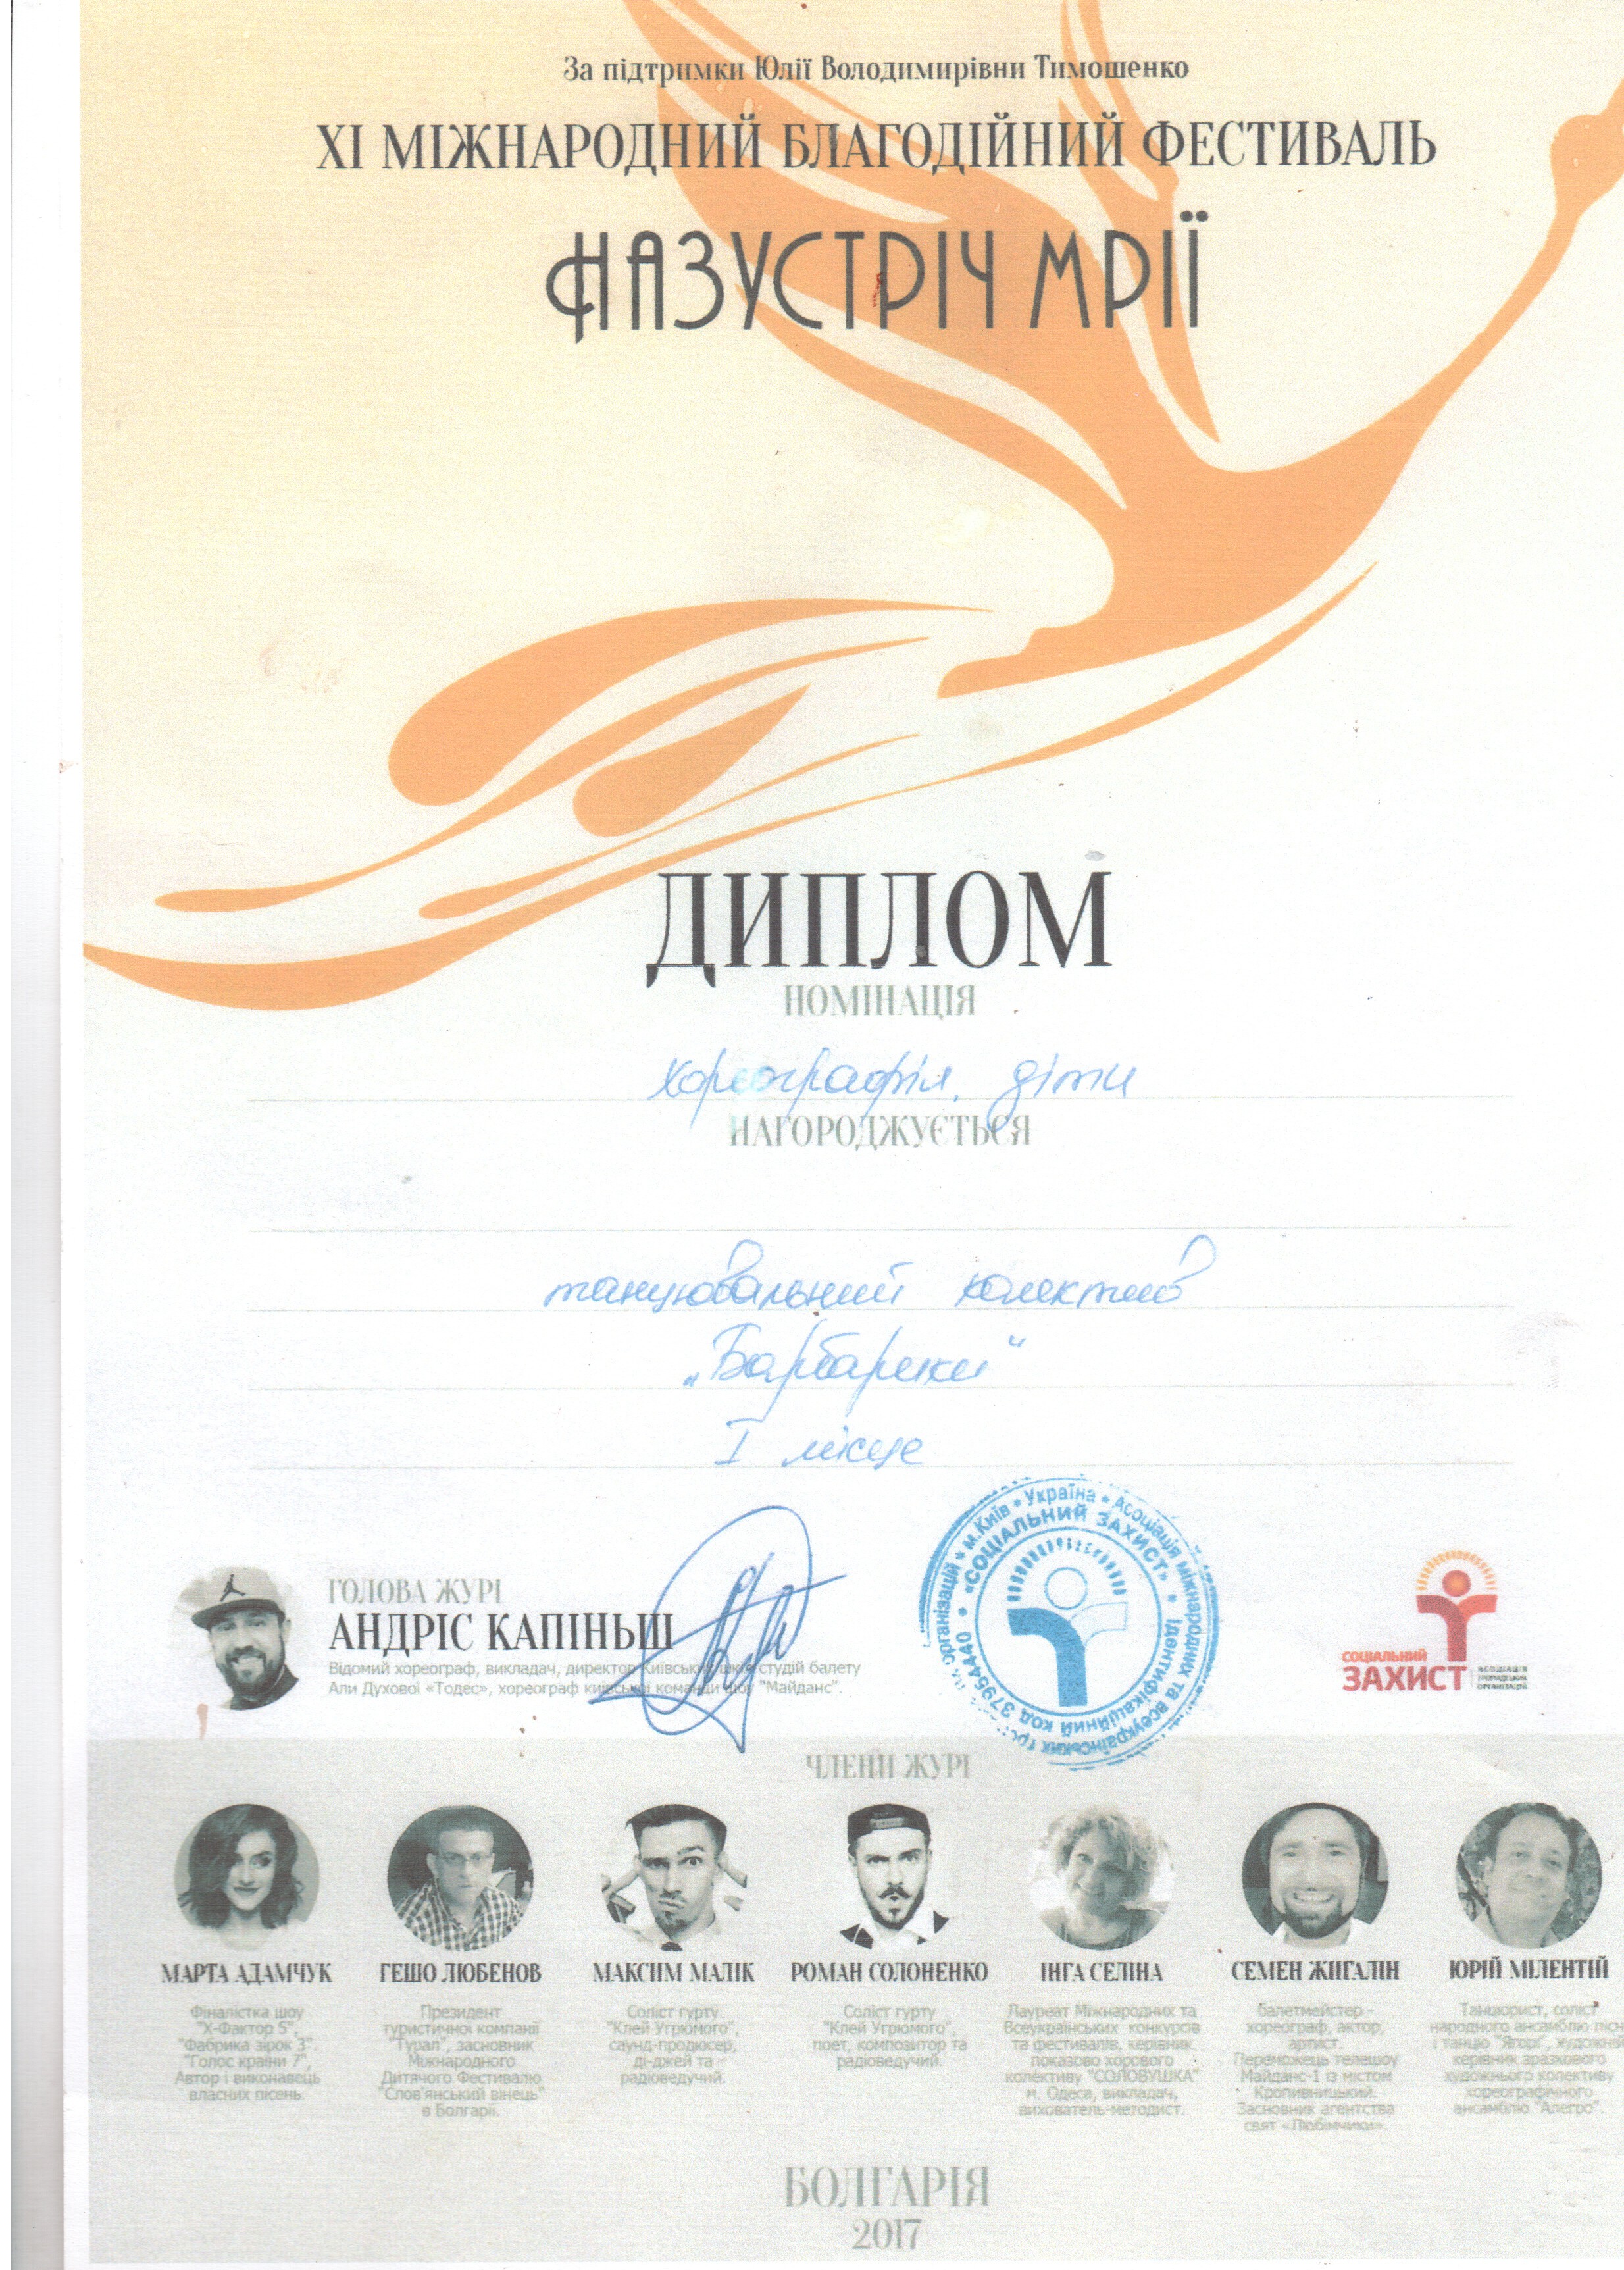 За підтримки Юлії Володимирівни Тимошенко
XI МІЖНАРОДНИЙ БЛАГОДІЙНИЙ ФЕСТИВАЛЬ
НАЗУСТРІЧ МРІЇ
ДИПЛОМ
НОМІНАЦІЯ
хореографія, діти
НАГОРОДЖУЄТЬСЯ
танцювальний колектив
„Барбарики“
I місце
ГОЛОВА ЖУРІ
АНДРІС КАПІНЬШ
Відомий хореограф, викладач, директор Київських шкіл-студій балету
Али Духової «Тодес», хореограф київської команди шоу "Майданс".
м.Київ * Україна * Асоціація міжнародних та всеукраїнських організацій
«СОЦІАЛЬНИЙ ЗАХИСТ» * Ідентифікаційний код 37954440 *
СОЦІАЛЬНИЙ
ЗАХИСТ
АСОЦІАЦІЯ
ГРОМАДСЬКИХ
ОРГАНІЗАЦІЙ
ЧЛЕНИ ЖУРІ
МАРТА АДАМЧУК
Фіналістка шоу
"Х-Фактор 5",
"Фабрика зірок 3".
"Голос країни 7",
Автор і виконавець
власних пісень.
ГЕШО ЛЮБЕНОВ
Президент
туристичної компанії
"Турал", засновник
Міжнародного
Дитячого Фестивалю
"Слов'янський вінець"
в Болгарії.
МАКСИМ МАЛІК
Соліст гурту
"Клей Угрюмого",
саунд-продюсер,
ді-джей та
радіоведучий.
РОМАН СОЛОНЕНКО
Соліст гурту
"Клей Угрюмого",
поет, композитор та
радіоведучий.
ІНГА СЕЛІНА
Лауреат Міжнародних та
Всеукраїнських конкурсів
та фестивалів, керівник
показово хорового
колективу "СОЛОВУШКА"
м. Одеса, викладач,
вихователь-методист.
СЕМЕН ЖИГАЛІН
балетмейстер -
хореограф, актор,
артист.
Переможець телешоу
Майданс-1 із містом
Кропивницький.
Засновник агентства
свят «Любімчики».
ЮРІЙ МІЛЕНТІЙ
Танцюрист, соліст
народного ансамблю пісн
і танцю "Ягорґ", художній
керівник зразкового
художнього колективу
хореографічного
ансамблю "Алегро".
БОЛГАРІЯ
2017